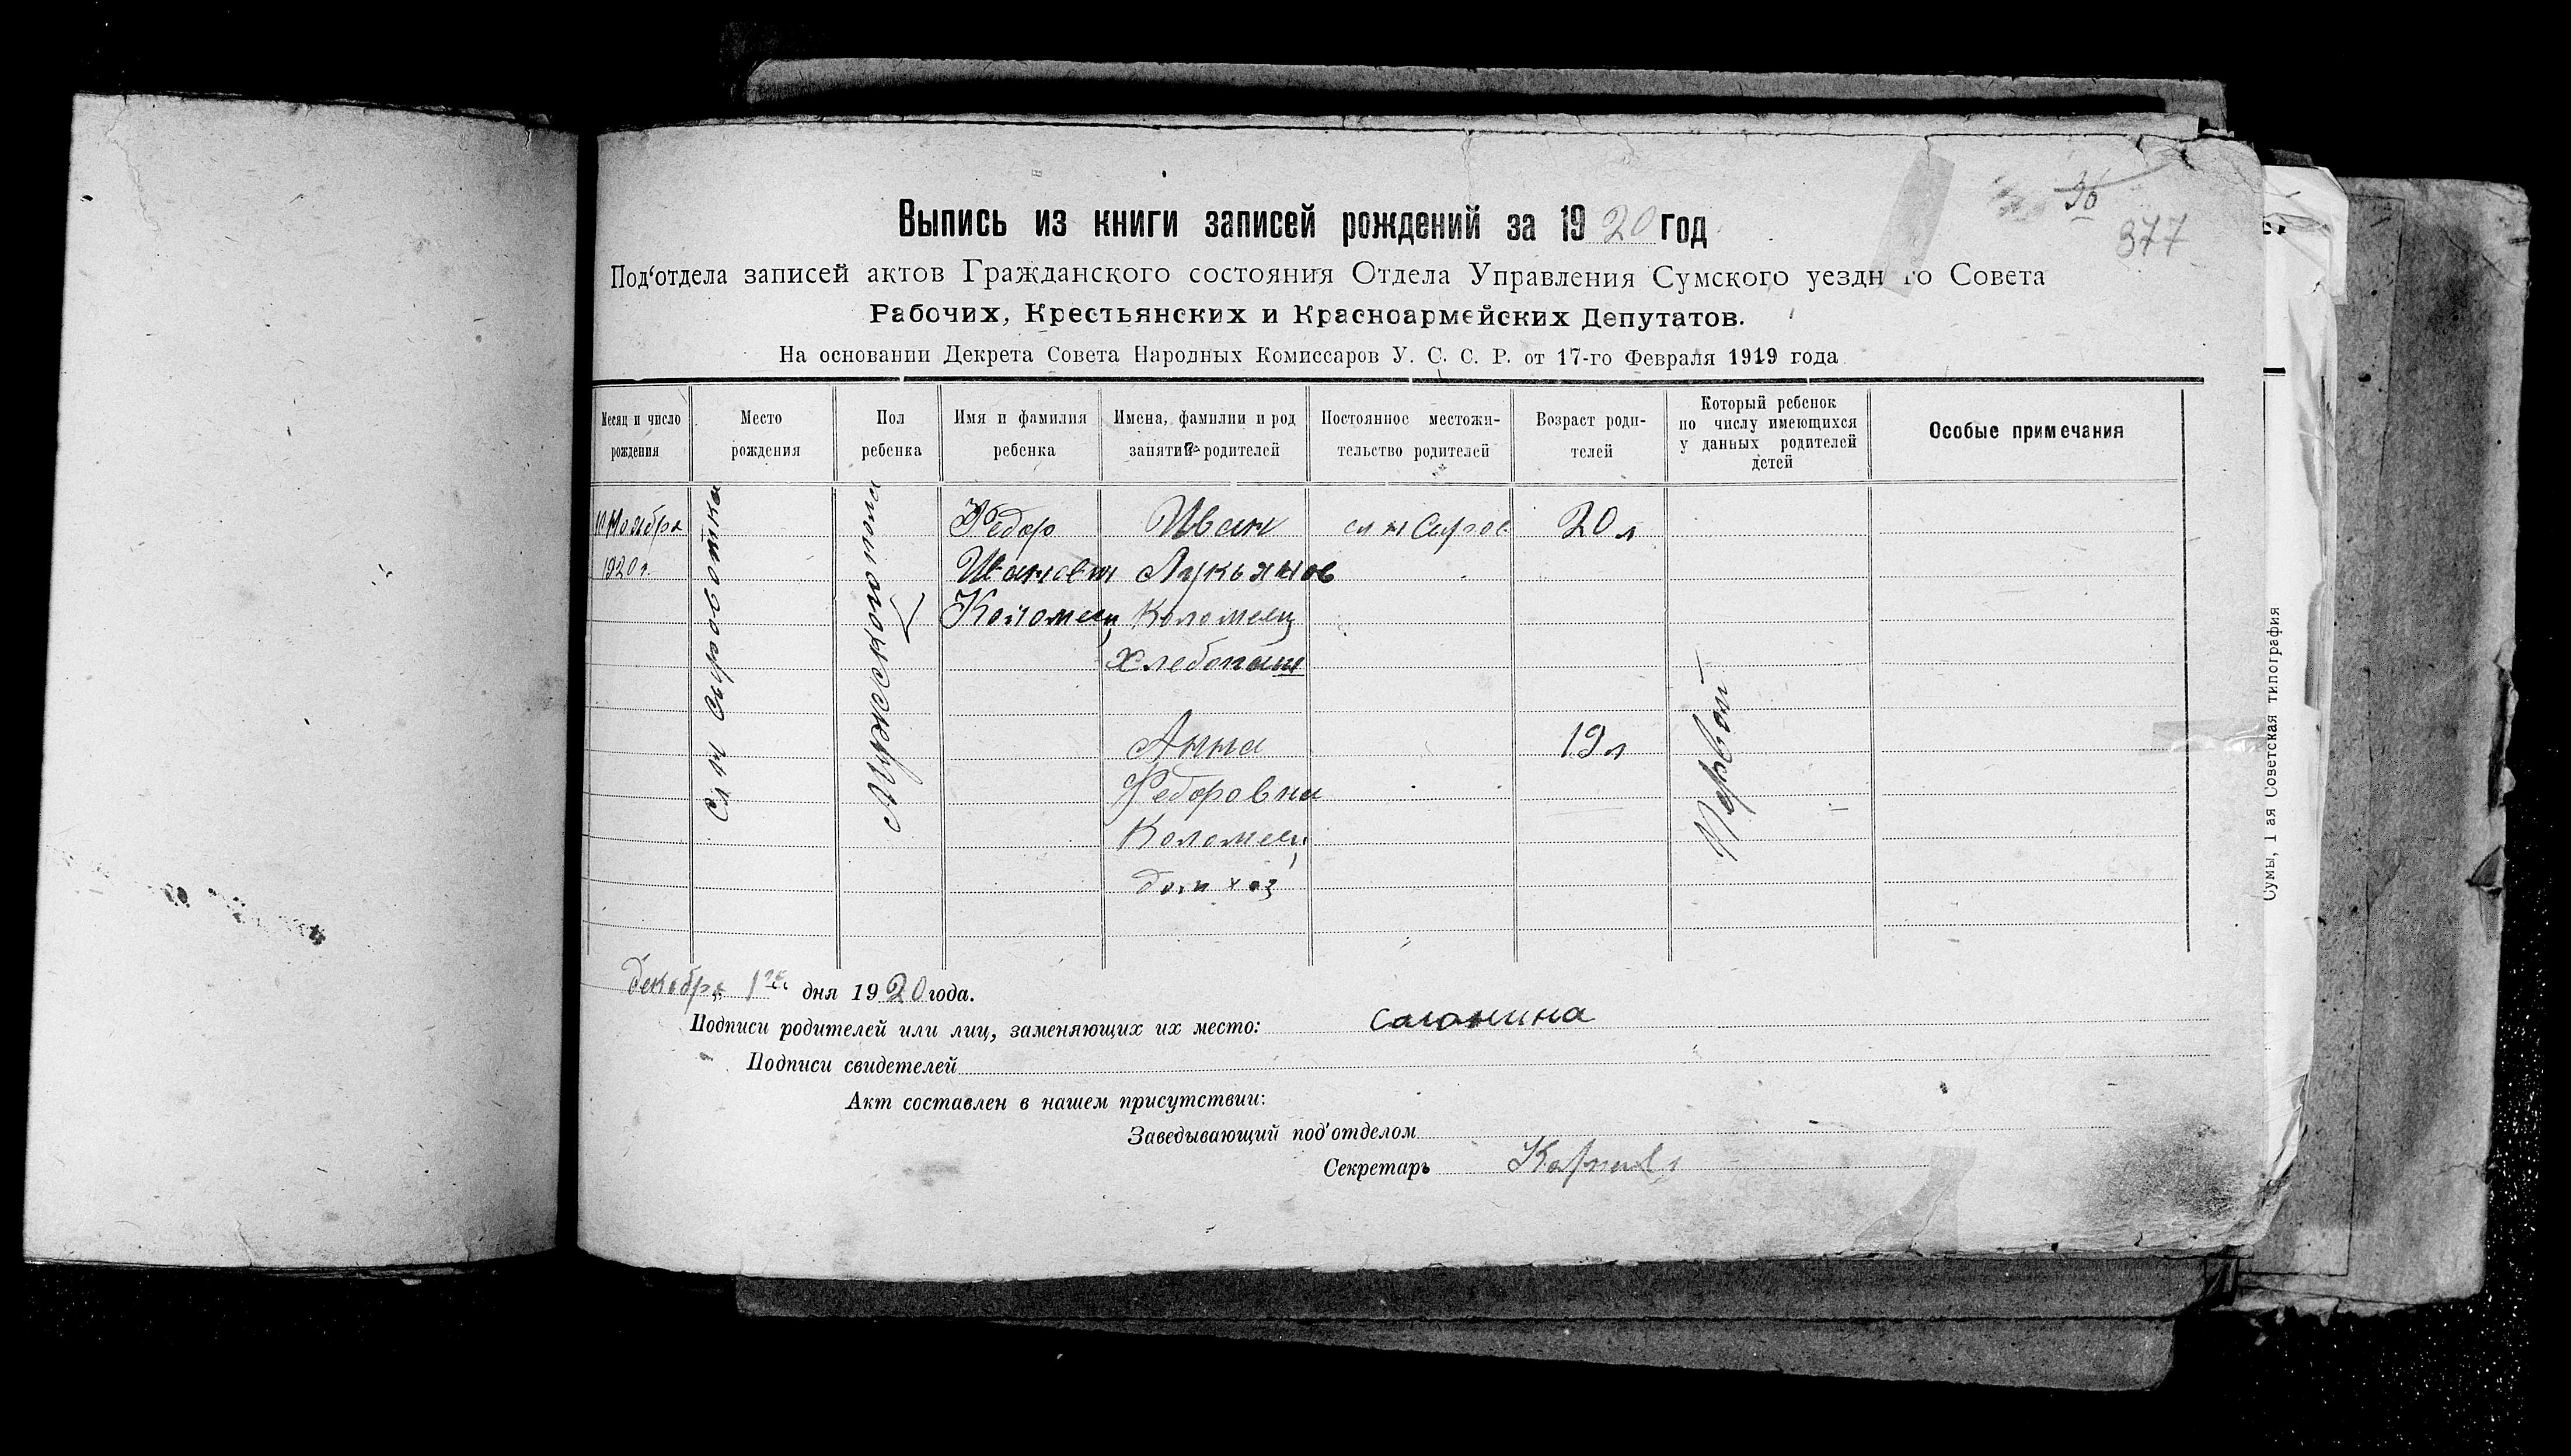 36
377
Выпись из книги записей рождений за 1920 год
Под'отдела записей актов Гражданского состояния Отдела Управления Сумского уездн го Совета
Рабочих, Крестьянских и Красноармейских Депутатов.
На основании Декрета Совета Народных Комиссаров У. С. С. Р. от 17-го Февраля 1919 года
Месяц и число рождения
Место рождения
Пол ребенка
Имя и фамилия ребенка
Имена, фамилии и род занятий родителей
Постоянное местожительство родителей
Возраст родителей
Который ребенок по числу имеющихся у данных родителей детей
Особые примечания
Ноября
1920 г.
Сл Н Сыроватка
Мужеского пола
Федор
Иванович
Коломеец
Иван
Лукьянов
Коломеец
Хлебопаш
Анна
Федоровна
Коломеец
дом хоз
сл Н Сыров
20 л
19 л
Первый
декабря 1го дня 1920 года.
Подписи родителей или лиц, заменяющих их место:
Подписи свидетелей
Акт составлен в нашем присутствии:
Заведывающий под'отделом
Секретарь
Сумы, 1 ая Советская типография